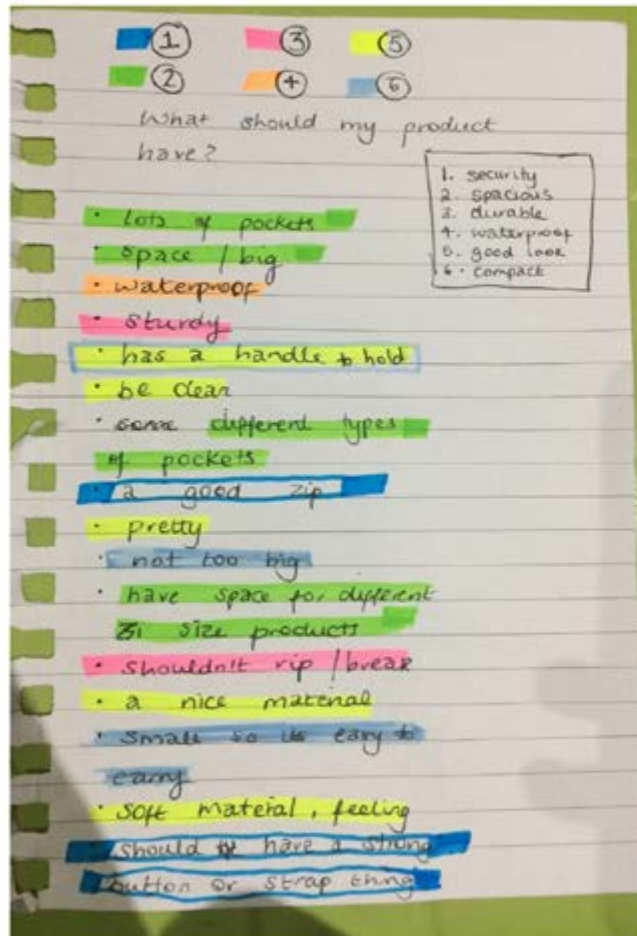 1 3 5
2 4 6
What should my product
have?
1. security
2. spacious
3. durable
4. waterproof
5. good look
6. compact
• lots of pockets
• space / big
• waterproof
• sturdy
• has a handle to hold
• be clear
• some different types
of pockets
• a good zip
• pretty
• not too big
• have space for different
size products
• shouldn't rip / break
• a nice material
• small so its easy to
carry
• soft material, feeling
• should have a strong
button or strap thing